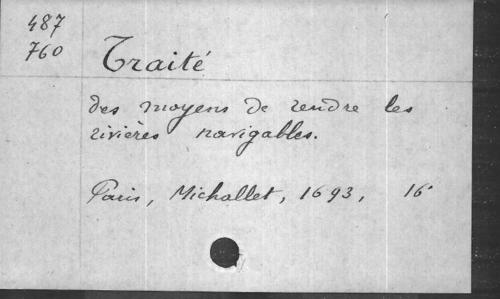 487
760
Traité
des moyens de rendre les
rivières navigables.
Paris, Michallet, 1693, 16°